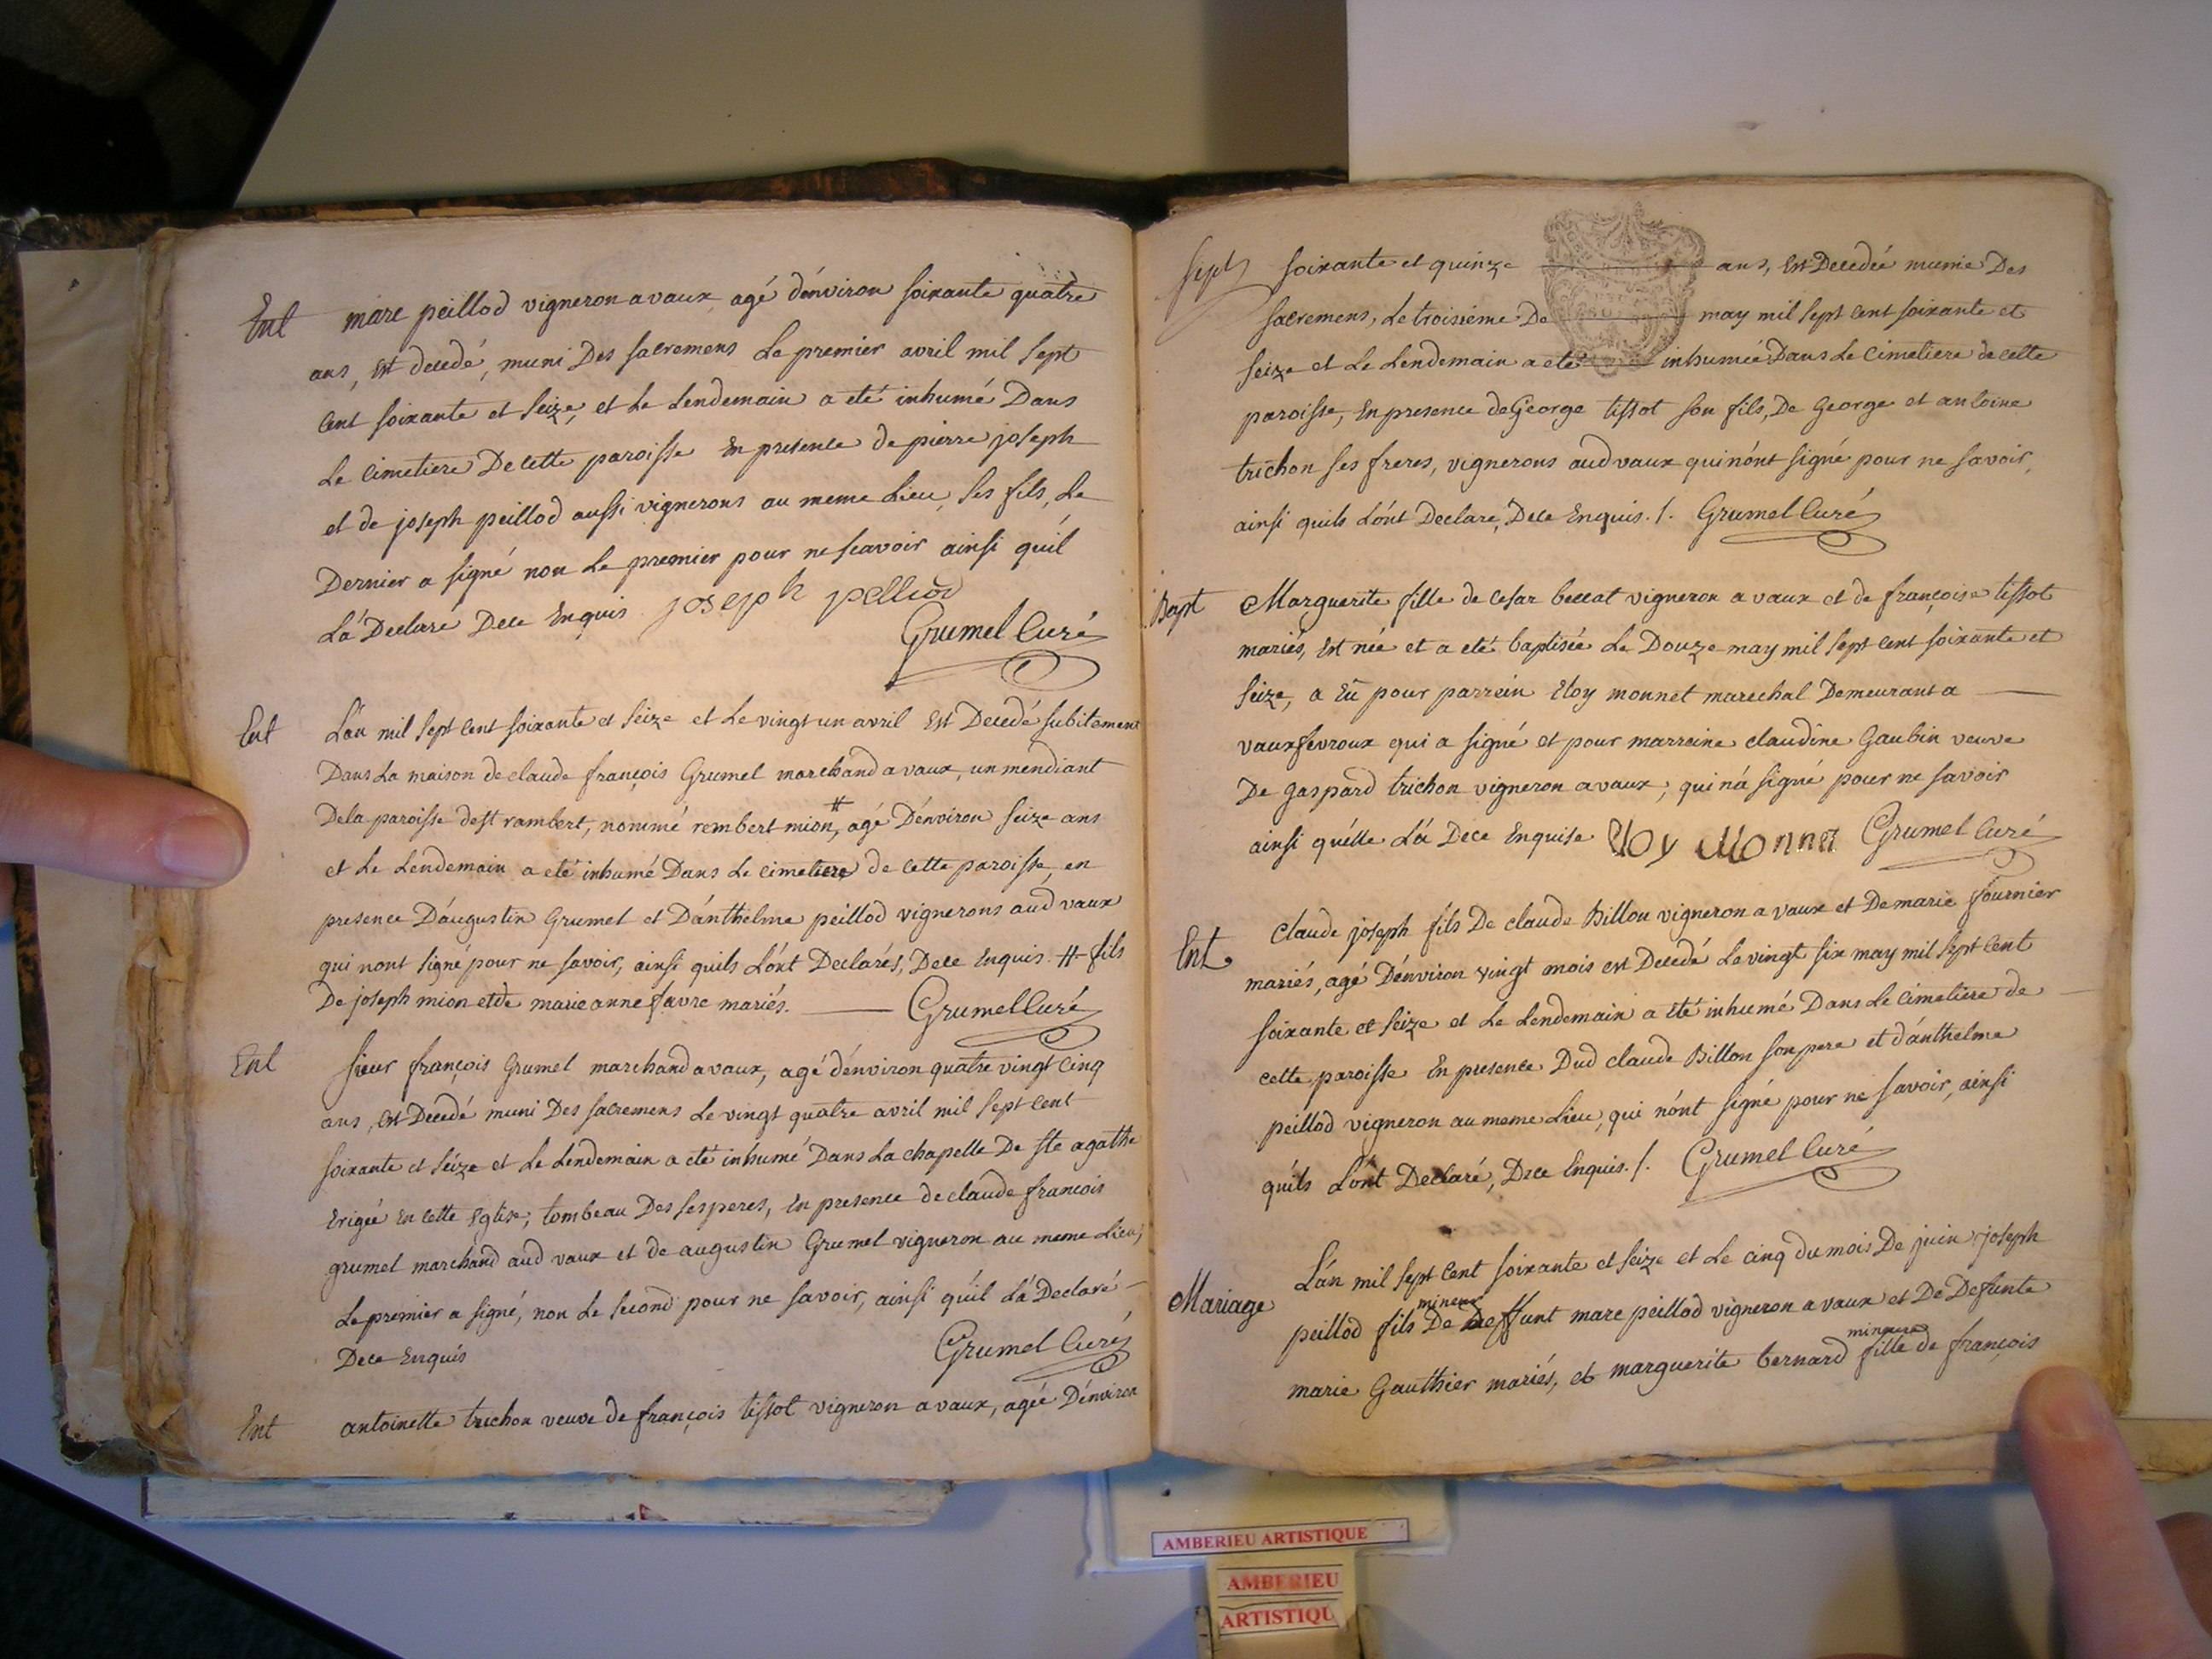 Ent marc peillod vigneron a vaux agé d'environ soixante quatre
ans, est decedé, muni Des sacremens Le premier avril mil sept
cent soixante et seize, et Le Lendemain a eté inhumé Dans
Le cimetiere De cette paroisse En presence de pierre joseph
et de joseph peillod aussi vignerons au meme Lieu, ses fils, Le
Dernier a signé non Le premier pour ne scavoir ainsi qu'il
L'a Declaré De ce Enquis joseph pelliod
Grumel Curé
Ent L'an mil sept cent soixante et seize et Le vingt un avril Est Decedé subitement
Dans La maison de claude françois Grumel marchand a vaux, un mendiant
De la paroisse de st rambert, nommé rembert mion, # agé D'environ seize ans
et Le Lendemain a eté inhumé Dans Le cimetiere de cette paroisse, en
presence D'augustin Grumel et D'anthelme peillod vignerons aud vaux
qui nont signé pour ne savoir, ainsi quils L'ont Declarés, De ce Enquis. # fils
De joseph mion et de marie anne favre mariés. Grumel Curé
Ent sieur françois Grumel marchand a vaux, agé d'environ quatre vingt cinq
ans, est Decedé muni Des sacremens Le vingt quatre avril mil sept cent
soixante et seize et Le Lendemain a eté inhumé Dans La chapelle De ste agathe
Erigée En cette Eglise, tombeau Des ses peres, En presence de claude francois
grumel marchand aud vaux et de augustin Grumel vigneron au meme Lieu,
Le premier a signé, non Le second pour ne savoir, ainsi qu'il L'a Declaré
De ce Enquis Grumel Curé
Ent antoinette trichon veuve de françois tissot vigneron a vaux, agée D'environ
sept soixante et quinze ans, Est Decedée munie Des
sacremens, Le troisieme De may mil sept cent soixante et
seize et Le Lendemain a eté inhumée Dans Le Cimetiere de cette
paroisse, En presence de George tissot son fils, De George et antoine
trichon ses freres, vignerons aud vaux qui n'ont signé pour ne savoir,
ainsi quils L'ont Declaré, De ce Enquis. /. Grumel Curé
Bapt Marguerite fille de Cesar beccat vigneron a vaux et de françoise tissot
mariés, Est née et a eté baptisée Le Douze may mil sept cent soixante et
seize, a Eû pour parrein Eloy monnet marechal Demeurant a
vauxfevroux qui a signé et pour marreine claudine Gaubin veuve
De gaspard trichon vigneron a vaux, qui n'a signé pour ne savoir
ainsi qu'elle L'a De ce Enquise Eloy Monnet Grumel Curé
Ent Claude joseph fils De claude Billon vigneron a vaux et De marie fournier
mariés, agé D'environ vingt mois est Decedé Le vingt six may mil sept cent
soixante et seize et Le Lendemain a eté inhumé Dans Le Cimetiere de
cette paroisse En presence Dud claude Billon son pere et d'anthelme
peillod vigneron au meme Lieu, qui n'ont signé pour ne savoir, ainsi
qu'ils L'ont Declaré, De ce Enquis. /. Grumel Curé
Mariage L'an mil sept Cent soixante et seize et Le cinq du mois De juin joseph
peillod fils mineur De Deffunt marc peillod vigneron a vaux et De Defunte
marie Gauthier mariés, et marguerite bernard fille mineure de françois
AMBERIEU ARTISTIQUE
AMBERIEU
ARTISTIQU